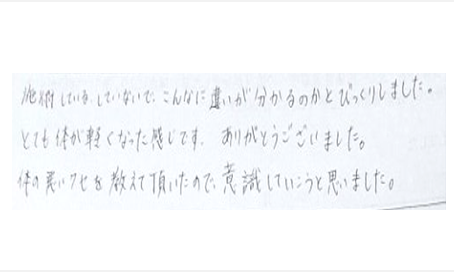 施術している、していないで、こんなに違いが分かるのかとびっくりしました。
とても体が軽くなった感じです。ありがとうございました。
体の悪いクセを教えて頂いたので、意識していこうと思いました。